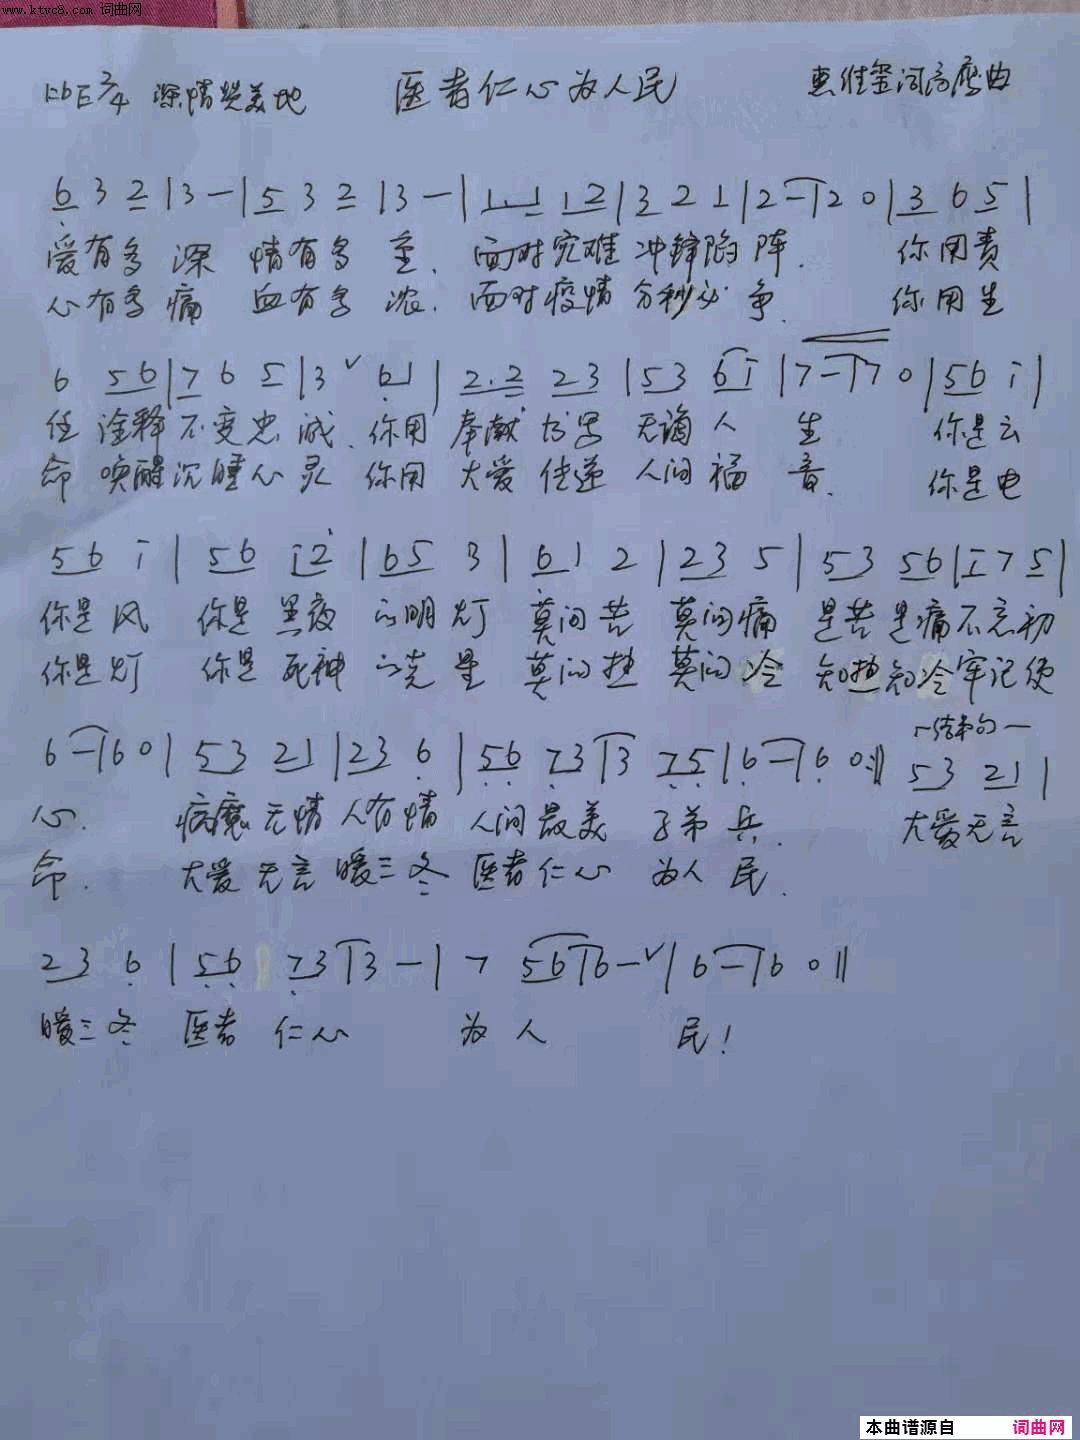 www.ktvc8.com 词曲网
1=bE 2/4 深情赞美地 医者仁心为人民 惠维玺词 曲
6 3 2 | 3 - | 5 3 2 | 3 - | 1. 1 1 2 | 3 2 1 | 2 - | 2 0 | 3 6 5 |
爱有多深 情有多至. 面对灾难 冲锋陷阵. 你用责
心有多痛 血有多浓. 面对疫情 分秒必争. 你用生
6 56 | 7 6 5 | 3 ∨ 61 | 2.2 23 | 53 6i | 7 - | 7 0 | 56 i |
任 诠释不变忠诚. 你用 奉献书写 无谪人生 你是云
命 唤醒沉睡心灵 你用 大爱传递 人间福音. 你是电
56 i | 56 i2 | 65 3 | 61 2 | 23 5 | 53 56 | i 7 5 |
你是风 你是黑夜 的明灯 莫问苦 莫问痛 是苦是痛不忘初
你是灯 你是死神 的克星 莫问热 莫问冷 知热知冷牢记使
6 - | 6 0 | 53 21 | 23 6 | 56 73 | 3 75 | 6 - | 6 0 :||
结束句
53 21 |
心. 病魔无情 人有情 人间最美 子弟兵. 大爱无言
命. 大爱无言 暖三冬 医者仁心 为人民.
23 6 | 56 73 | 3 - | 7 56 | 6 - ∨ | 6 - | 6 0 ||
暖三冬 医者仁心 为人 民!
本曲谱源自 词曲网